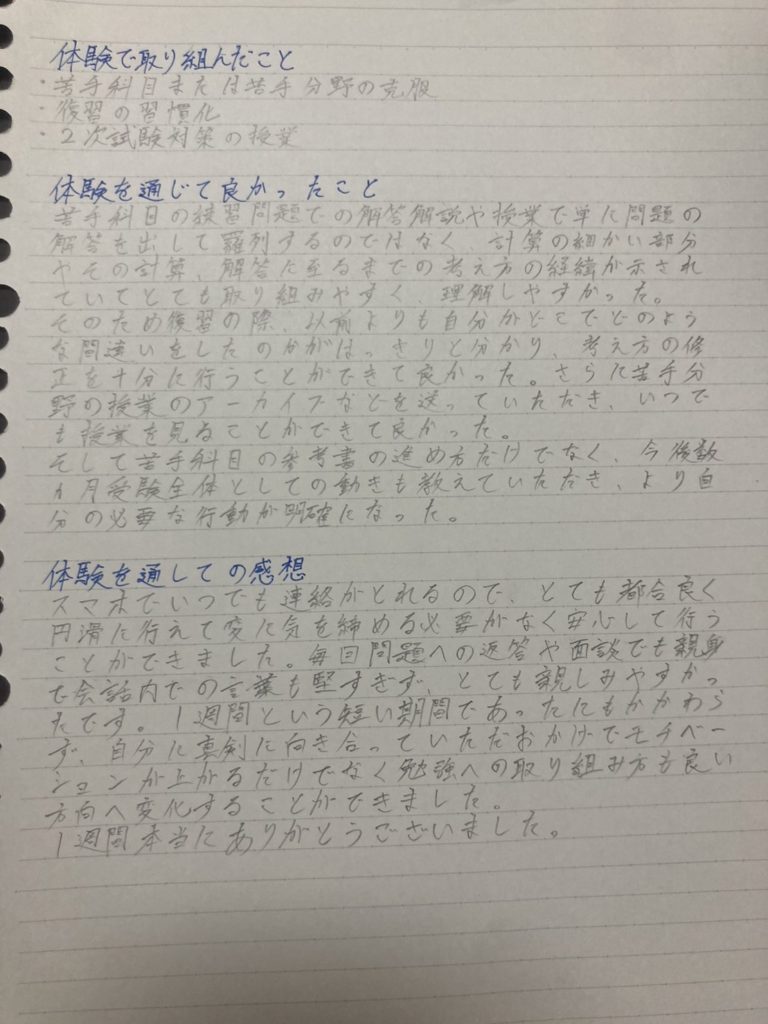 体験で取り組んだこと
・苦手科目または苦手分野の克服
・復習の習慣化
・2次試験対策の授業
体験を通じて良かったこと
苦手科目の練習問題での解答解説や授業で単に問題の
解答を出して羅列するのではなく、計算の細かい部分
やその計算、解答に至るまでの考え方の経緯が示され
ていてとても取り組みやすく、理解しやすかった。
そのため復習の際、以前よりも自分がどこでどのよう
な間違いをしたのかがはっきりと分かり、考え方の修
正を十分に行うことができて良かった。さらに苦手分
野の授業のアーカイブなどを送っていただき、いつで
も授業を見ることができて良かった。
そして苦手科目の参考書の進め方だけでなく、今後数
ヵ月受験全体としての動きも教えていただき、より自
分の必要な行動が明確になった。
体験を通しての感想
スマホでいつでも連絡がとれるので、とても都合良く
円滑に行えて変に気を締める必要がなく安心して行う
ことができました。毎回問題への返答や面談でも親身
で会話内での言葉も堅すぎず、とても親しみやすかっ
たです。1週間という短い期間であったにもかかわら
ず、自分に真剣に向き合っていただおかけでモチベー
ションが上がるだけでなく勉強への取り組み方も良い
方向へ変化することができました。
1週間本当にありがとうございました。